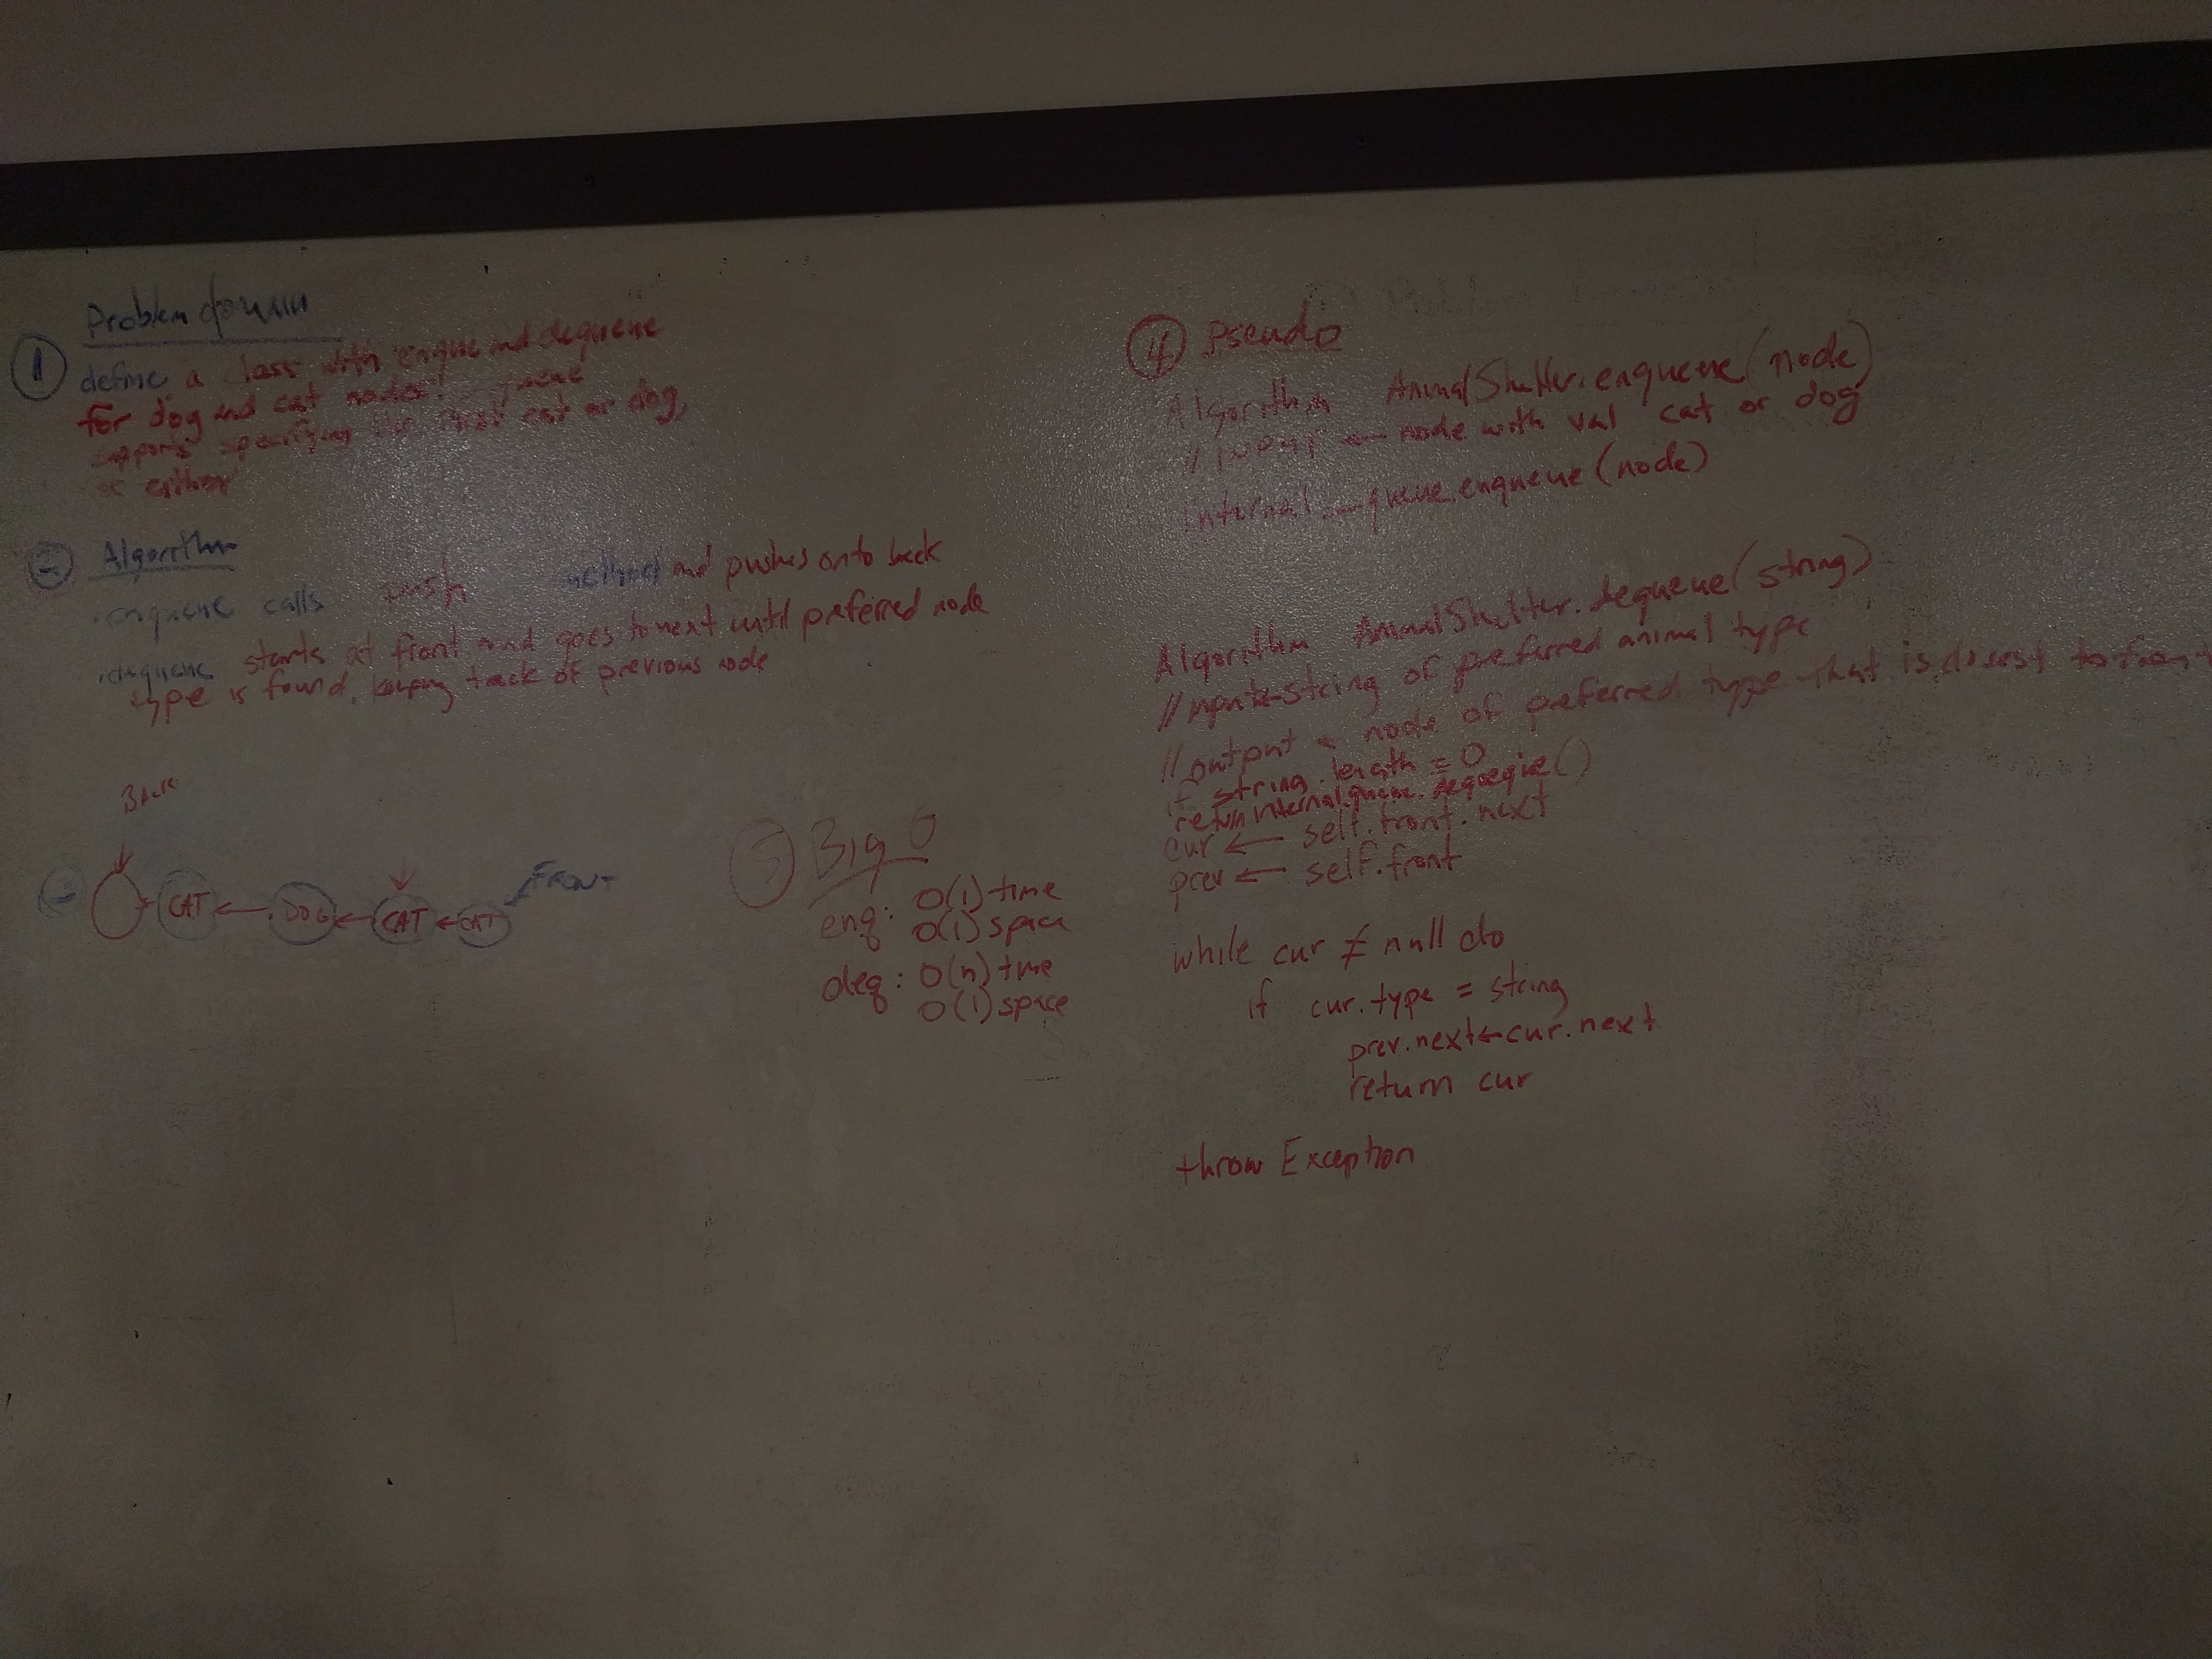 ① Problem domain
define a class with enque and dequeue
for dog and cat nodes!
supports specifying the first cat or dog,
or either
② Algorithm
.enqueue calls push method and pushes onto back
.dequeue starts at front and goes to next until preferred node
type is found, keeping track of previous node
Back
FRONT
CAT ← DOG ← CAT ← CAT
⑤ Big O
enq: O(1) time
O(1) space
deq: O(n) time
O(1) space
④ Pseudo
Algorithm AnimalShelter.enqueue(node)
// INPUT ← node with val cat or dog
internal_queue.enqueue(node)
Algorithm AnimalShelter.dequeue(string)
// string of preferred animal type
// output ← node of preferred type that is closest to front
if string.length = 0
return internal.queue.
cur ← self.front.next
prev ← self.front
while cur ≠ null do
if cur.type = string
prev.next ← cur.next
return cur
throw Exception